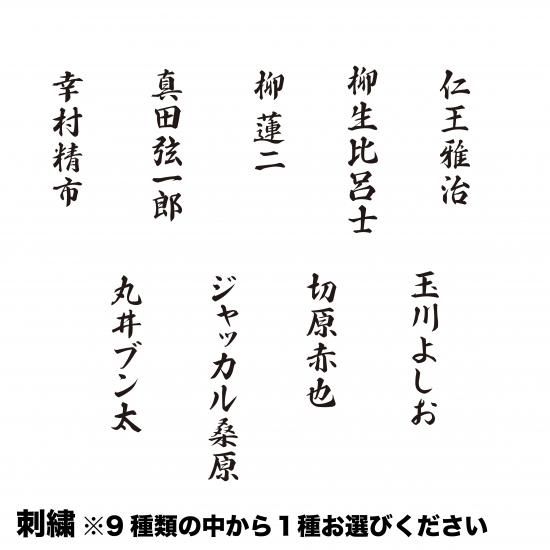 幸村精市
真田弦一郎
柳蓮二
柳生比呂士
仁王雅治
丸井ブン太
ジャッカル桑原
切原赤也
玉川よしお
刺繍 ※9種類の中から1種お選びください